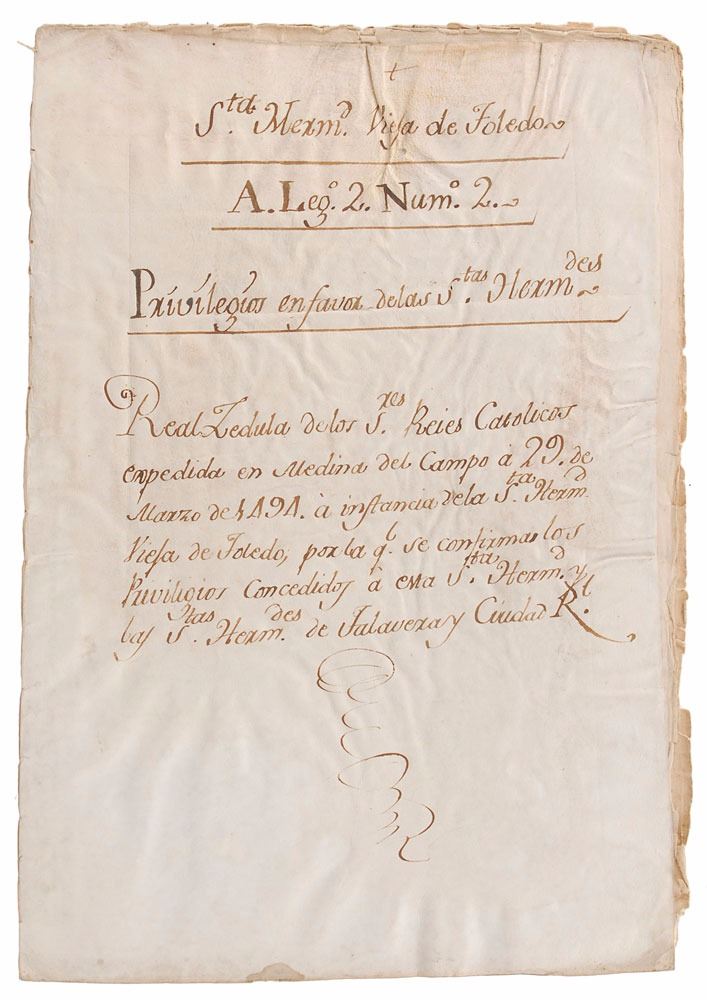 +
S.ta Herm.d Viefa de Toledo
A. Leg.o 2. Num.o 2.
Privilegios en favor de las S.tas Herm.des
Real Zedula de los S.res Reies Catolicos
expedida en Medina del Campo à 29. de
Marzo de 1494. à instancia de la S.ta Herm.d
Viefa de Toledo, por la q.l se confirman los
Priviligios Concedidos à esta S.ta Herm.d y
las S.tas Herm.des de Talavera y Ciudad R.l